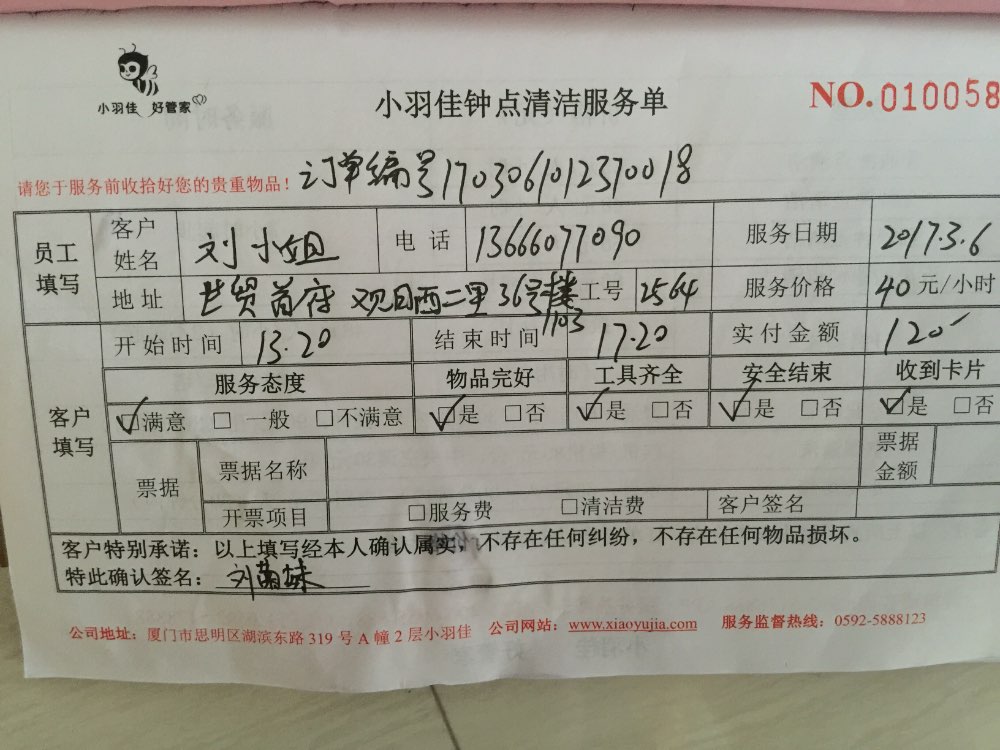 小羽佳 好管家
小羽佳钟点清洁服务单
NO.010058
请您于服务前收拾好您的贵重物品!
订单编号1703061012370018
员工填写 客户姓名 刘小姐 电话 13666077090 服务日期 2017.3.6
地址 世贸首座 观日西二里36号楼1103 工号 2564 服务价格 40元/小时
开始时间 13.20 结束时间 17.20 实付金额 120
客户填写 服务态度 物品完好 工具齐全 安全结束 收到卡片
☑满意 □一般 □不满意 ☑是 □否 ☑是 □否 ☑是 □否 ☑是 □否
票据 票据名称 票据金额
开票项目 □服务费 □清洁费 客户签名
客户特别承诺：以上填写经本人确认属实，不存在任何纠纷，不存在任何物品损坏。
特此确认签名：刘菊妹
公司地址：厦门市思明区湖滨东路319号A幢2层小羽佳 公司网站：www.xiaoyujia.com 服务监督热线：0592-5888123